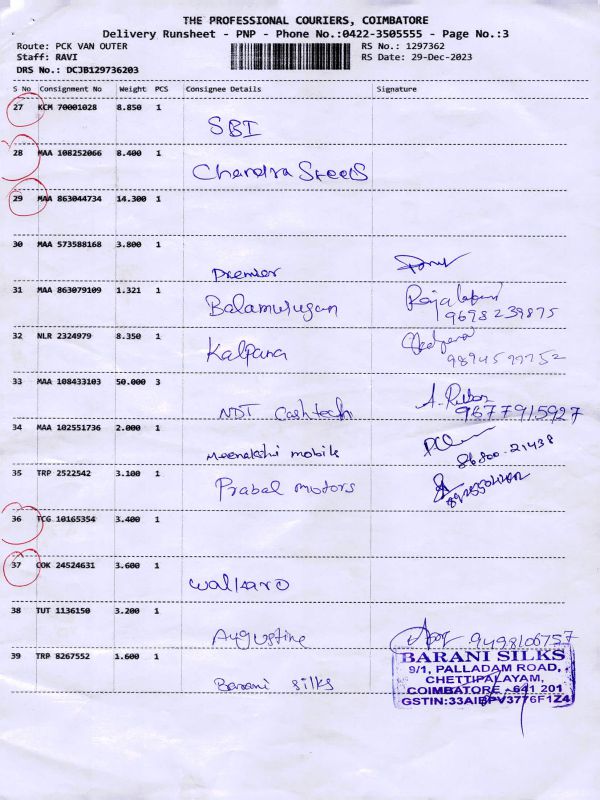 THE PROFESSIONAL COURIERS, COIMBATORE
Delivery Runsheet - PNP - Phone No.:0422-3505555 - Page No.:3
Route: PCK VAN OUTER RS No.: 1297362
Staff: RAVI RS Date: 29-Dec-2023
DRS No.: DCJB129736203
S No Consignment No Weight PCS Consignee Details Signature
27 KCM 70001028 8.850 1
SBI
28 MAA 108252066 8.400 1
Chandra Steels
29 MAA 863044734 14.300 1
30 MAA 573588168 3.800 1
Premier
31 MAA 863079109 1.321 1
Balamurugan
9698239875
32 NLR 2324979 8.350 1
Kalpana
33 MAA 108433103 50.000 3
NDT Cashtech
9677915927
34 MAA 102551736 2.000 1
Meenakshi mobile
86800-21438
35 TRP 2522542 3.100 1
Prabal motors
36 TCG 10165354 3.400 1
37 COK 24524631 3.600 1
Walkaro
38 TUT 1136150 3.200 1
Augustine 9498106757
39 TRP 8267552 1.600 1
Barani silks
BARANI SILKS
9/1, PALLADAM ROAD,
CHETTIPALAYAM,
COIMBATORE - 641 201
GSTIN:33AIBPV3776F1Z4